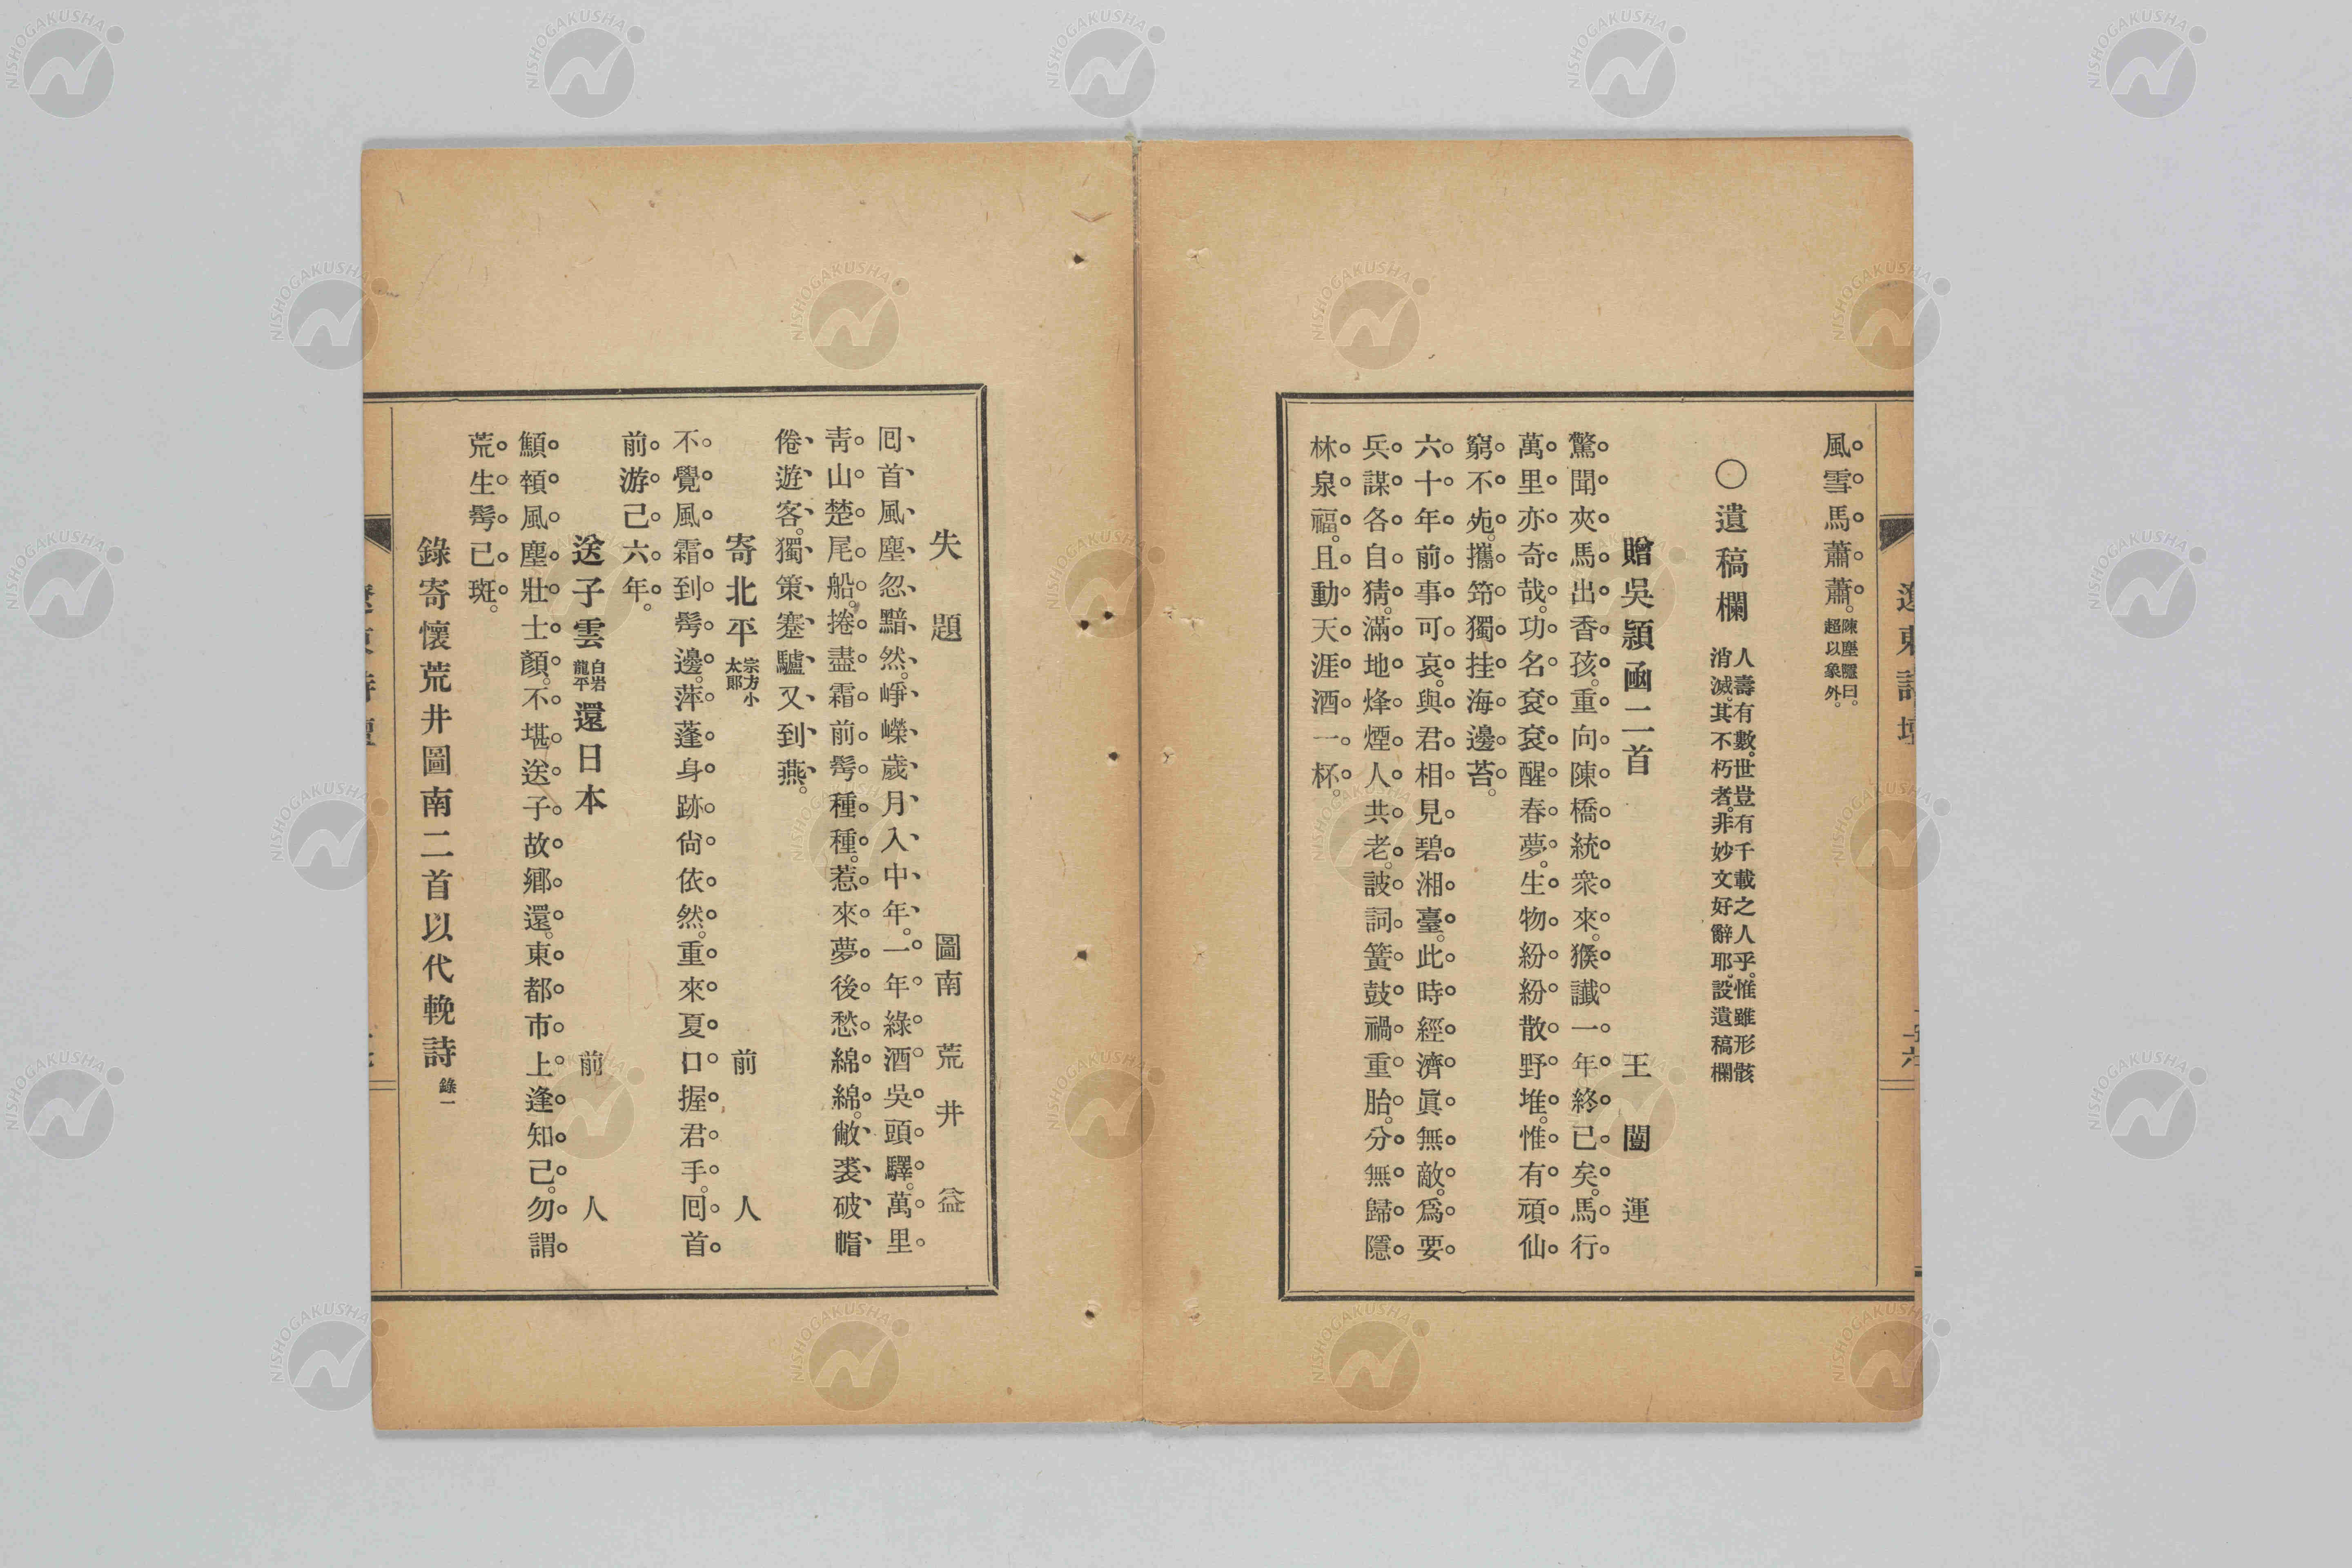 風雪馬蕭蕭。陳塵隱曰。超以象外。
〇遺稿欄 人壽有數。世豈有千載之人乎。惟雖形骸消滅。其不朽者。非妙文好辭耶。設遺稿欄
贈吳潁函二首 王闓運
驚聞夾馬出香孩。重向陳橋統衆來。猴讖一年終已矣。馬行
萬里亦奇哉。功名袞袞醒春夢。生物紛紛散野堆。惟有頑仙
窮不死。攜筇獨挂海邊苔。
六十年前事可哀。與君相見碧湘臺。此時經濟眞無敵。爲要
兵謀各自猜。滿地烽煙人共老。詖詞簧鼓禍重胎。分無歸隱
林泉福。且動天涯酒一杯。
失題 圖南 荒井 益
囘首風塵忽黯然。崢嶸歲月入中年。一年綠酒吳頭驛。萬里
靑山楚尾船。捲盡霜前髩種種。惹來夢後愁綿綿。敝裘破帽
倦遊客。獨策蹇驢又到燕。
寄北平宗方小太郞 前人
不覺風霜到髩邊。萍蓬身跡尙依然。重來夏口握君手。囘首
前游已六年。
送子雲白岩龍平還日本 前人
顦顇風塵壯士顏。不堪送子故鄕還。東都市上逢知己。勿謂
荒生髩已斑。
錄寄懷荒井圖南二首以代輓詩錄一
NISHOGAKUSHA